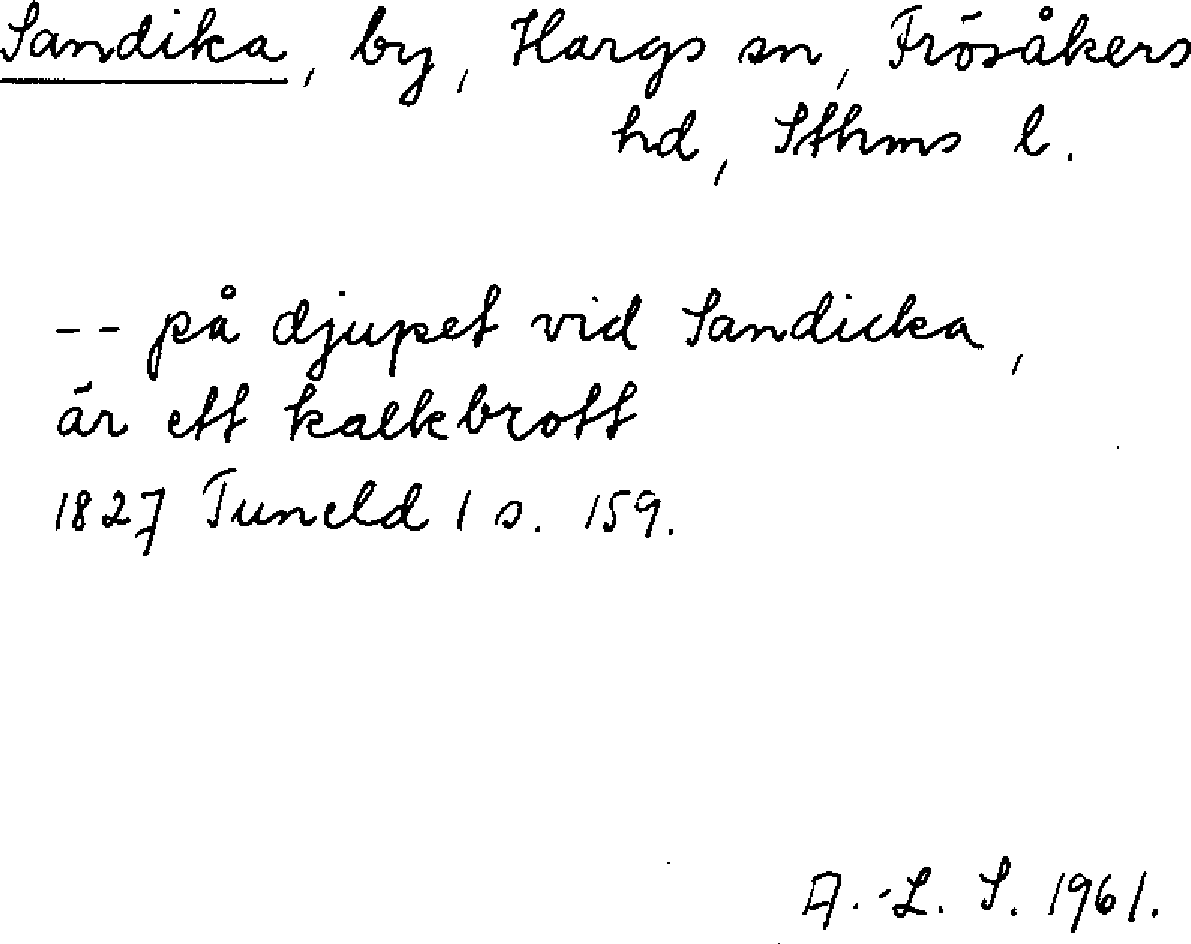 Sandika, by, Hargs sn, Frösåkers
hd, Sthms l.
-- på djupet vid Sandicka,
är ett kalkbrott
1827 Tuneld 1 s. 159.
A.-L. S. 1961.